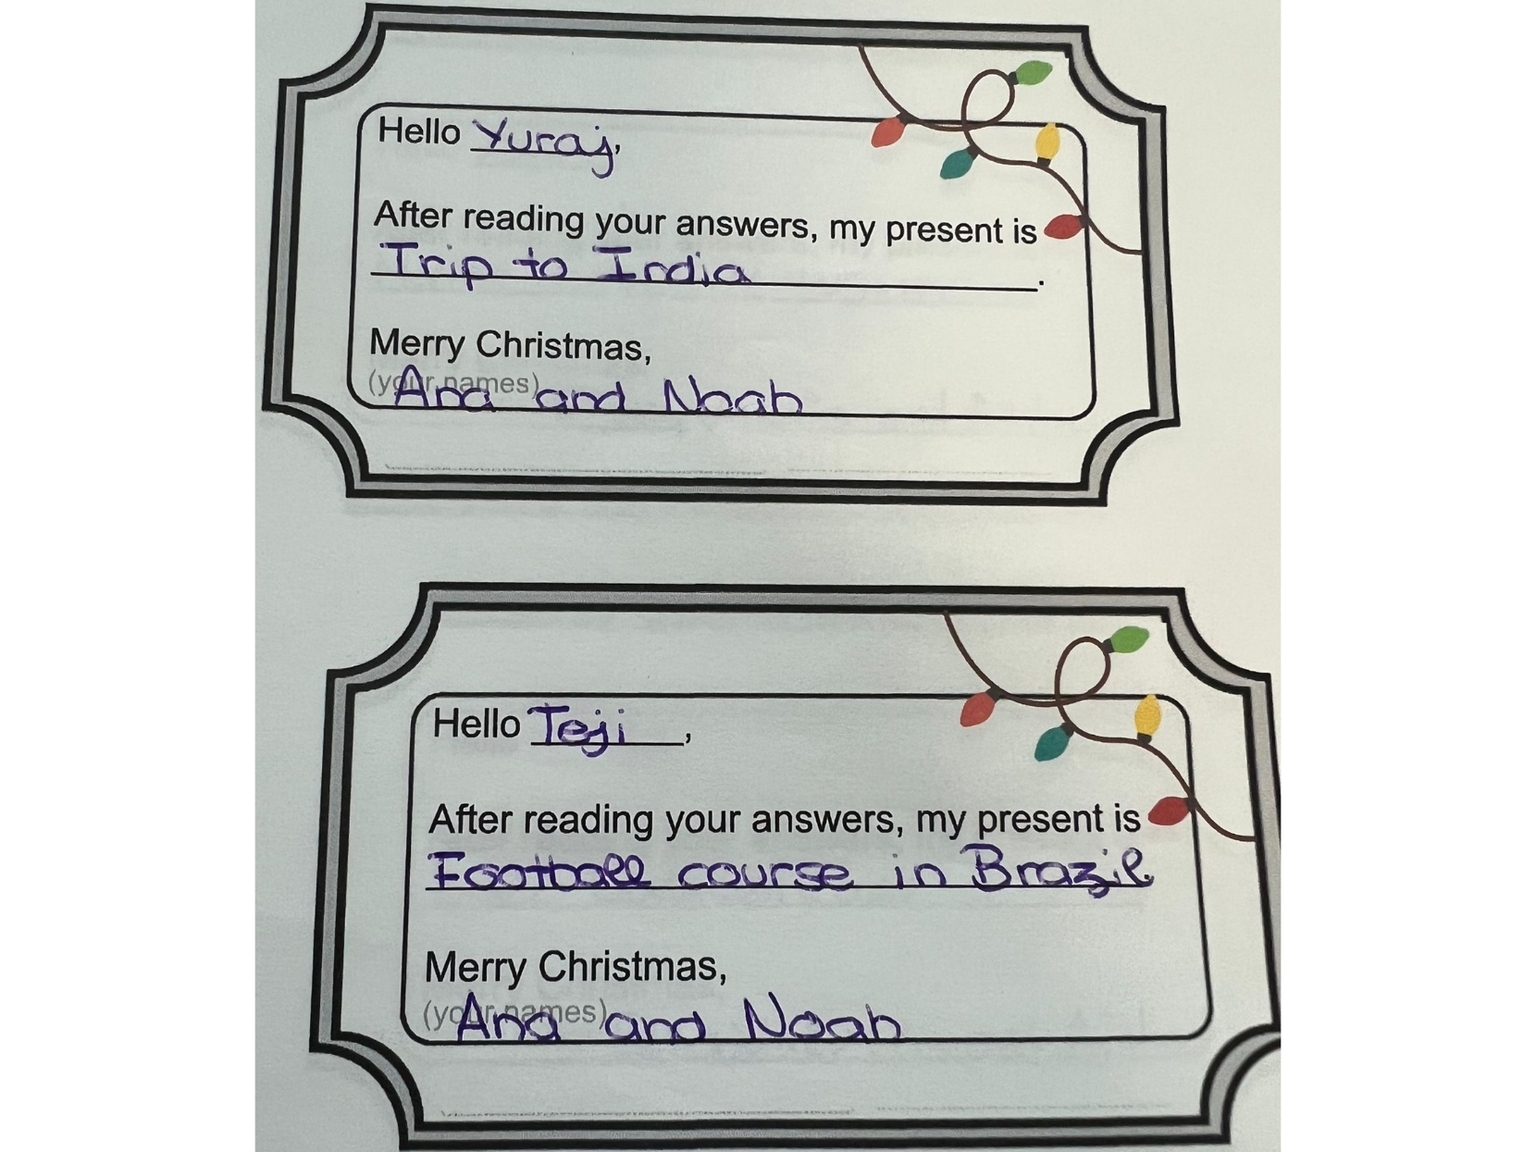 Hello Yuraj,
After reading your answers, my present is
Trip to India.
Merry Christmas,
(your names)
Ana and Noah
Hello Teji,
After reading your answers, my present is
Football course in Brazil
Merry Christmas,
(your names)
Ana and Noah